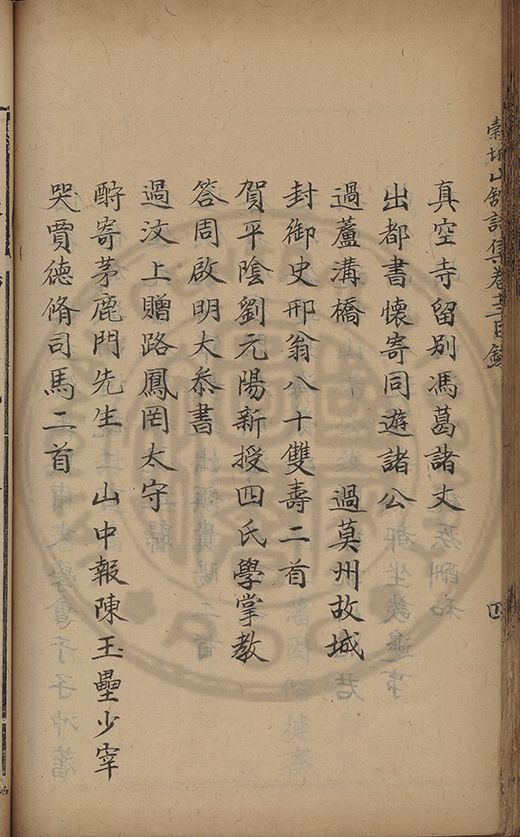 穀城山館詩集卷十二目錄
真空寺留別馮葛諸丈
出都書懷寄同遊諸公
過蘆溝橋　過莫州故城
封御史邢翁八十雙壽二首
賀平陰劉元陽新授四氏學掌教
答周啟明大叅書
過汶上贈路鳳罔太守
酧寄茅鹿門先生　山中報陳玉壘少宰
哭賈德脩司馬二首
四